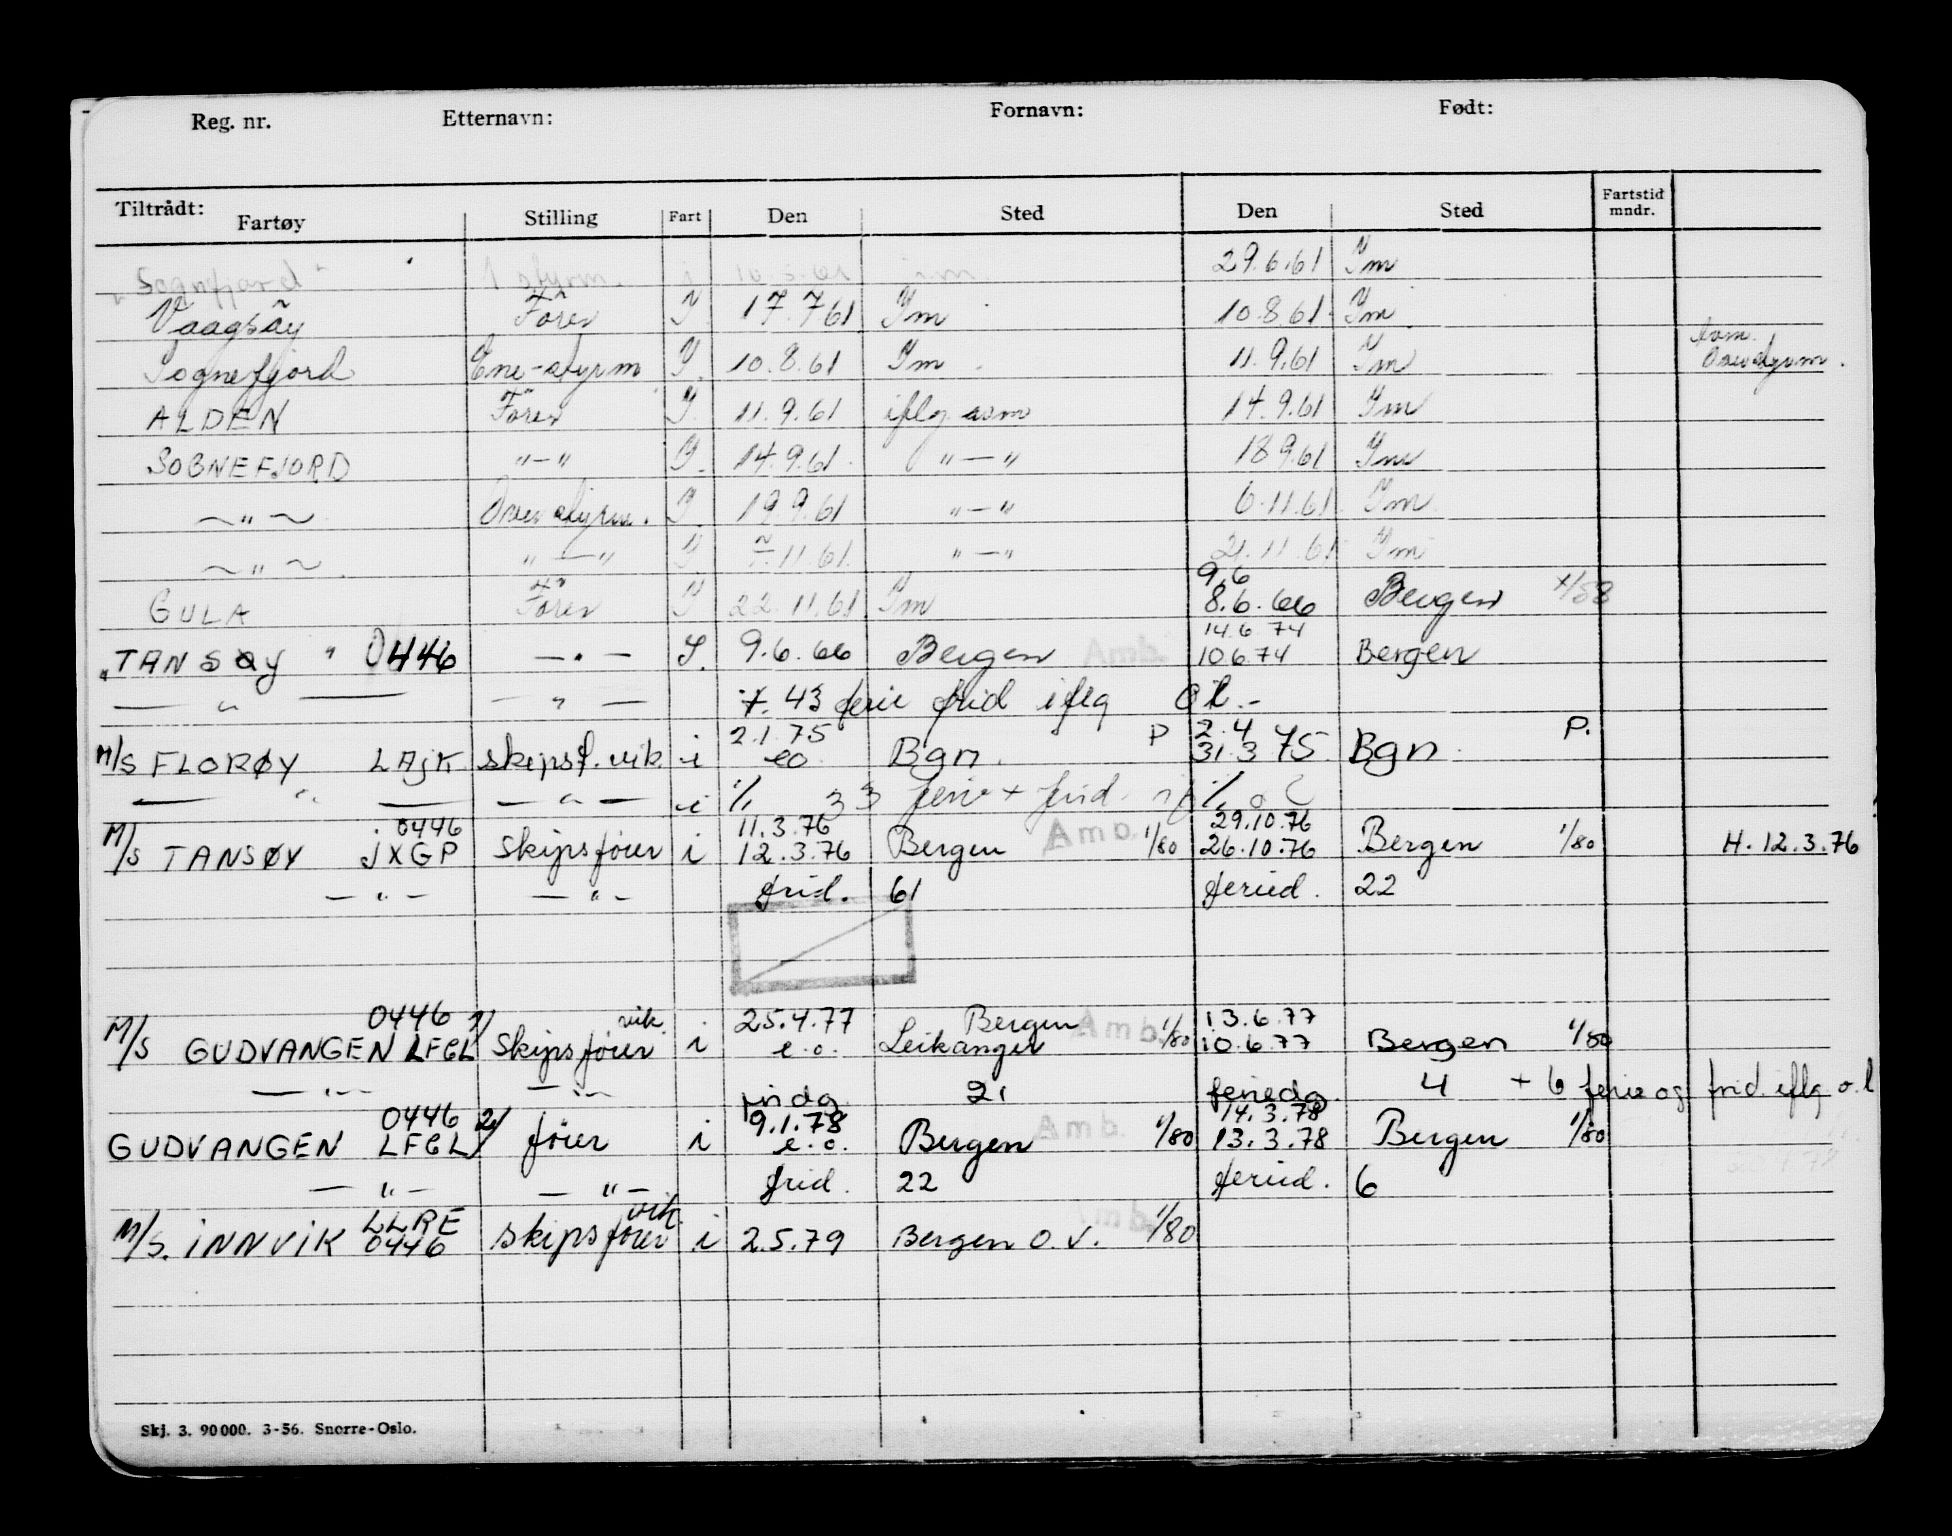 Reg. nr. Etternavn: Fornavn: Født:
Tiltrådt: Fartøy Stilling Fart Den Sted Den Sted Fartstid mndr.
Sognefjord 1 styrm. 29.6.61 Im
Vaagsøy Fører I 17.7.61 Im 10.8.61 Im
Sognefjord Ene-styrm I. 10.8.61 Im 11.9.61 Im som Overstyrm.
ALDEN Fører I. 11.9.61 iflg. 14.9.61 Im
SOGNEFJORD "—" I. 14.9.61 "—" 18.9.61 Im
~"~ Overstyrm. I. 19.9.61 "—" 6.11.61 Im
~"~ "—" I 7.11.61 "—" 21.11.61 Im
GULA Fører I 22.11.61 Im 9.6 8.6.66 Bergen
"TANSØY" 0446 —"— I. 9.6.66 Bergen Amb. 14.6.74 10.6.74 Bergen
—"— —"— +. 43 ferie frid iflg o l.-
M/S FLORØY LAJK skipsf. vik. i 2.1.75 eo. Bgn. P 2.4 31.3.75 Bgn. P.
—"— —"— i 33 ferie + frid.
M/S TANSØY 0446 JXGP Skipsfører i 11.3.76 12.3.76 Bergen Amb. 1/80 29.10.76 26.10.76 Bergen 1/80 H. 12.3.76
—"— —"— frid. 61 feried. 22
M/S GUDVANGEN 0446 LFCL 1/ Skipsfører vik. i 25.4.77 e.o. Bergen Leikanger Amb. 1/80 13.6.77 10.6.77 Bergen 1/80
—"— —"— fridg. 21 feriedg. 4 + 6 ferie og frid. iflg o.l
GUDVANGEN 0446 LFCL 2/ fører i 9.1.78 e.o. Bergen Amb. 1/80 14.3.78 13.3.78 Bergen 1/80
—"— —"— frid. 22 feried. 6
M/S. INNVIK LLRE 0446 skipsfører vik. i 2.5.79 Bergen o.v. Amb. 1/80
Skj. 3. 90000. 3-56. Snorre-Oslo.